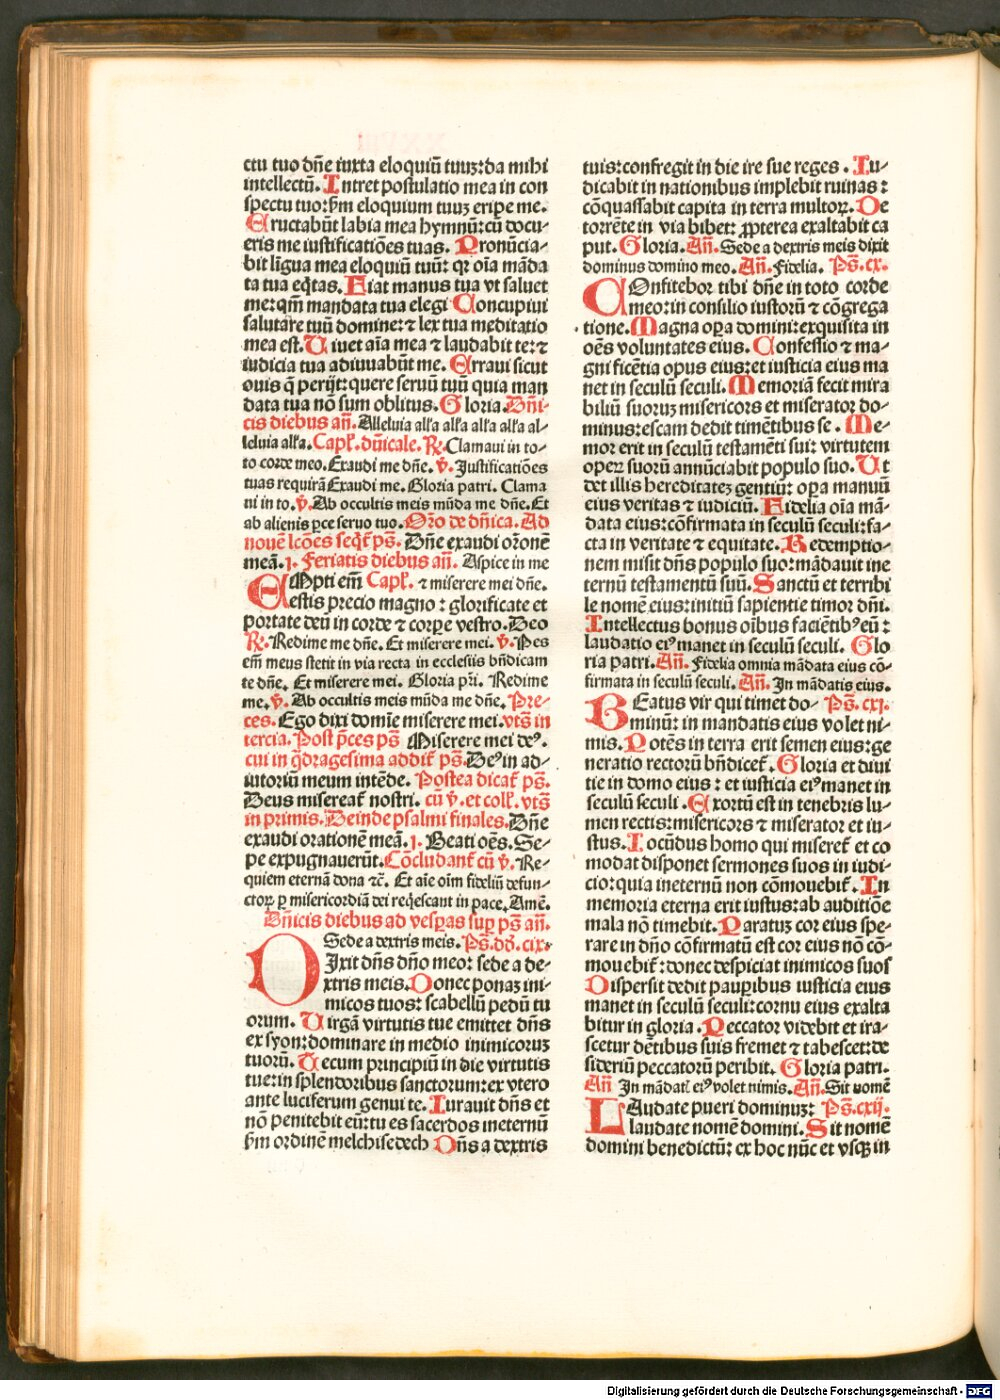 ctu tuo dñe iuxta eloquiũ tuuꝫ: da mihi
intellectũ. Intret postulatio mea in con
spectu tuo: ẜm eloquium tuuꝫ eripe me.
Eructabũt labia mea hymnũ: cũ docu-
eris me iustificatiões tuas. Pronũcia-
bit ligua mea eloquiũ tuũ: qꝛ oĩa mãda
ta tua eq̃tas. Fiat manus tua vt saluet
me: qm̃ mandata tua elegi Concupiui
salutare tuũ domine: ⁊ lex tua meditatio
mea est. Uiuet aĩa mea ⁊ laudabit te: ⁊
iudicia tua adiuuabũt me. Erraui sicut
ouis q̃ perijt: quere seruũ tuũ quia man
data tua nõ sum oblitus. Gloria. Dñi-
cis diebus añ. Alleluia all'a all'a all'a al-
leluia all'a. Capl'. dñicale. ℟. Clamaui in to-
to corde meo. Exaudi me dñe. ℣. Justificatiões
tuas requirã Exaudi me. Gloria patri. Clama
ui in to. ℣. Ab occultis meis mũda me dñe. Et
ab alienis ꝑce seruo tuo. Oro de dñica. Ad
nouẽ lcões seq̃t̃ pš. Dñe exaudi oronẽ
meã. 1. Feriatis diebus añ. Aspice in me
EMpti em̃ Capl'. ⁊ miserere mei dñe.
estis precio magno: glorificate et
portate deũ in corde ⁊ corpe vestro. Deo
℟. Redime me dñe. Et miserere mei. ℣. Pes
em̃ meus stetit in via recta in ecclesiis bñdicam
te dñe. Et miserere mei. Gloria pr̃i. Redime
me. ℣. Ab occultis meis mũda me dñe. Pre-
ces. Ego dixi domĩe miserere mei. vts̃ in
tercia. Post p̃ces pš Miserere mei deꝰ.
cui in q̃dragesima addit̃ pš. Deꝰ in ad-
iutoriũ meum intẽde. Postea dicat̃ pš.
Deus misereat̃ nostri. cũ ℣. et coll'. vts̃
in primis. Deinde psalmi finales. Dñe
exaudi orationẽ meã. 1. Beati oẽs. Se-
pe expugnauerũt. Cõcludant̃ cũ ℣. Re-
quiem eternã dona ⁊c̃. Et aĩe oĩm fideliũ defun-
ctoꝝ ꝑ misericordiã dei reqẽscant in pace. Amẽ.
Dñicis diebus ad vesꝑas suꝑ pš añ.
Sede a dextris meis. Pš. dd̃. cix.
DIxit dñs dño meo: sede a de-
xtris meis. Donec ponaꝫ ini-
micos tuos: scabellũ pedũ tu
orum. Uirgã virtutis tue emittet dñs
ex syon: dominare in medio inimicoruꝫ
tuorũ. Tecum principiũ in die virtutis
tue: in splendoribus sanctorum: ex vtero
ante luciferum genui te. Iurauit dñs et
nõ penitebit eũ: tu es sacerdos ineternũ
ẜm ordinẽ melchisedech Dñs a dextris
tuis: confregit in die ire sue reges. Iu-
dicabit in nationibus implebit ruinas:
cõquassabit capita in terra multoꝝ. De
torrẽte in via bibet: ꝓpterea exaltabit ca
put. Gloria. Añ. Sede a dextris meis dixit
dominus domino meo. Añ. Fidelia. Pš. cx.
COnfitebor tibi dñe in toto corde
meo: in consilio iustorũ ⁊ cõgrega
tione. Magna oꝑa domini: exquisita in
oẽs voluntates eius. Confessio ⁊ ma-
gnificẽtia opus eius: et iusticia eius ma
net in seculũ seculi. Memoriã fecit mira
biliũ suoruꝫ misericors et miserator do-
minus: escam dedit timẽtibus se. Me-
mor erit in seculũ testamẽti sui: virtutem
operꝫ suorũ annũciabit populo suo. Ut
det illis hereditateꝫ gentiũ: oꝑa manuũ
eius veritas ⁊ iudiciũ. Fidelia oĩa mã-
data eius: cõfirmata in seculũ seculi: fa-
cta in veritate ⁊ equitate. Redemptio-
nem misit dñs populo suo: mãdauit ine
ternũ testamentũ suũ. Sanctũ et terribi
le nomẽ eius: initiũ sapientie timor dñi.
Intellectus bonus oĩbus faciẽtibꝰ eũ:
laudatio eiꝰ manet in seculũ seculi. Glo
ria patri. Añ. Fidelia omnia mãdata eius cõ-
firmata in seculũ seculi. Añ. In mãdatis eius.
BEatus vir qui timet do- Pš. cxi.
minũ: in mandatis eius volet ni-
mis. Potẽs in terra erit semen eius: ge
neratio rectorũ bñdicet̃. Gloria et diui
tie in domo eius: et iusticia eiꝰ manet in
seculũ seculi. Exortũ est in tenebris lu-
men rectis: misericors ⁊ miserator et iu-
stus. Iocũdus homo qui miseret̃ et co
modat disponet sermones suos in iudi-
cio: quia ineternũ non cõmouebit̃. In
memoria eterna erit iustus: ab auditiõe
mala nõ timebit. Paratuꝫ cor eius spe-
rare in dño cõfirmatũ est cor eius nõ cõ-
mouebit̃: donec despiciat inimicos suos
Dispersit dedit pauꝑibus iusticia eius
manet in seculũ seculi: cornu eius exalta
bitur in gloria. Peccator videbit et ira-
scetur dẽtibus suis fremet ⁊ tabescet: de
sideriũ peccatorũ peribit. Gloria patri.
Añ In mãdat̃ eiꝰ volet nimis. Añ. Sit nomẽ
LAudate pueri dominuꝫ: Pš. cxij.
laudate nomẽ domini. Sit nomẽ
domini benedictũ: ex hoc nũc et vsqꝫ in
Digitalisierung gefördert durch die Deutsche Forschungsgemeinschaft - DFG